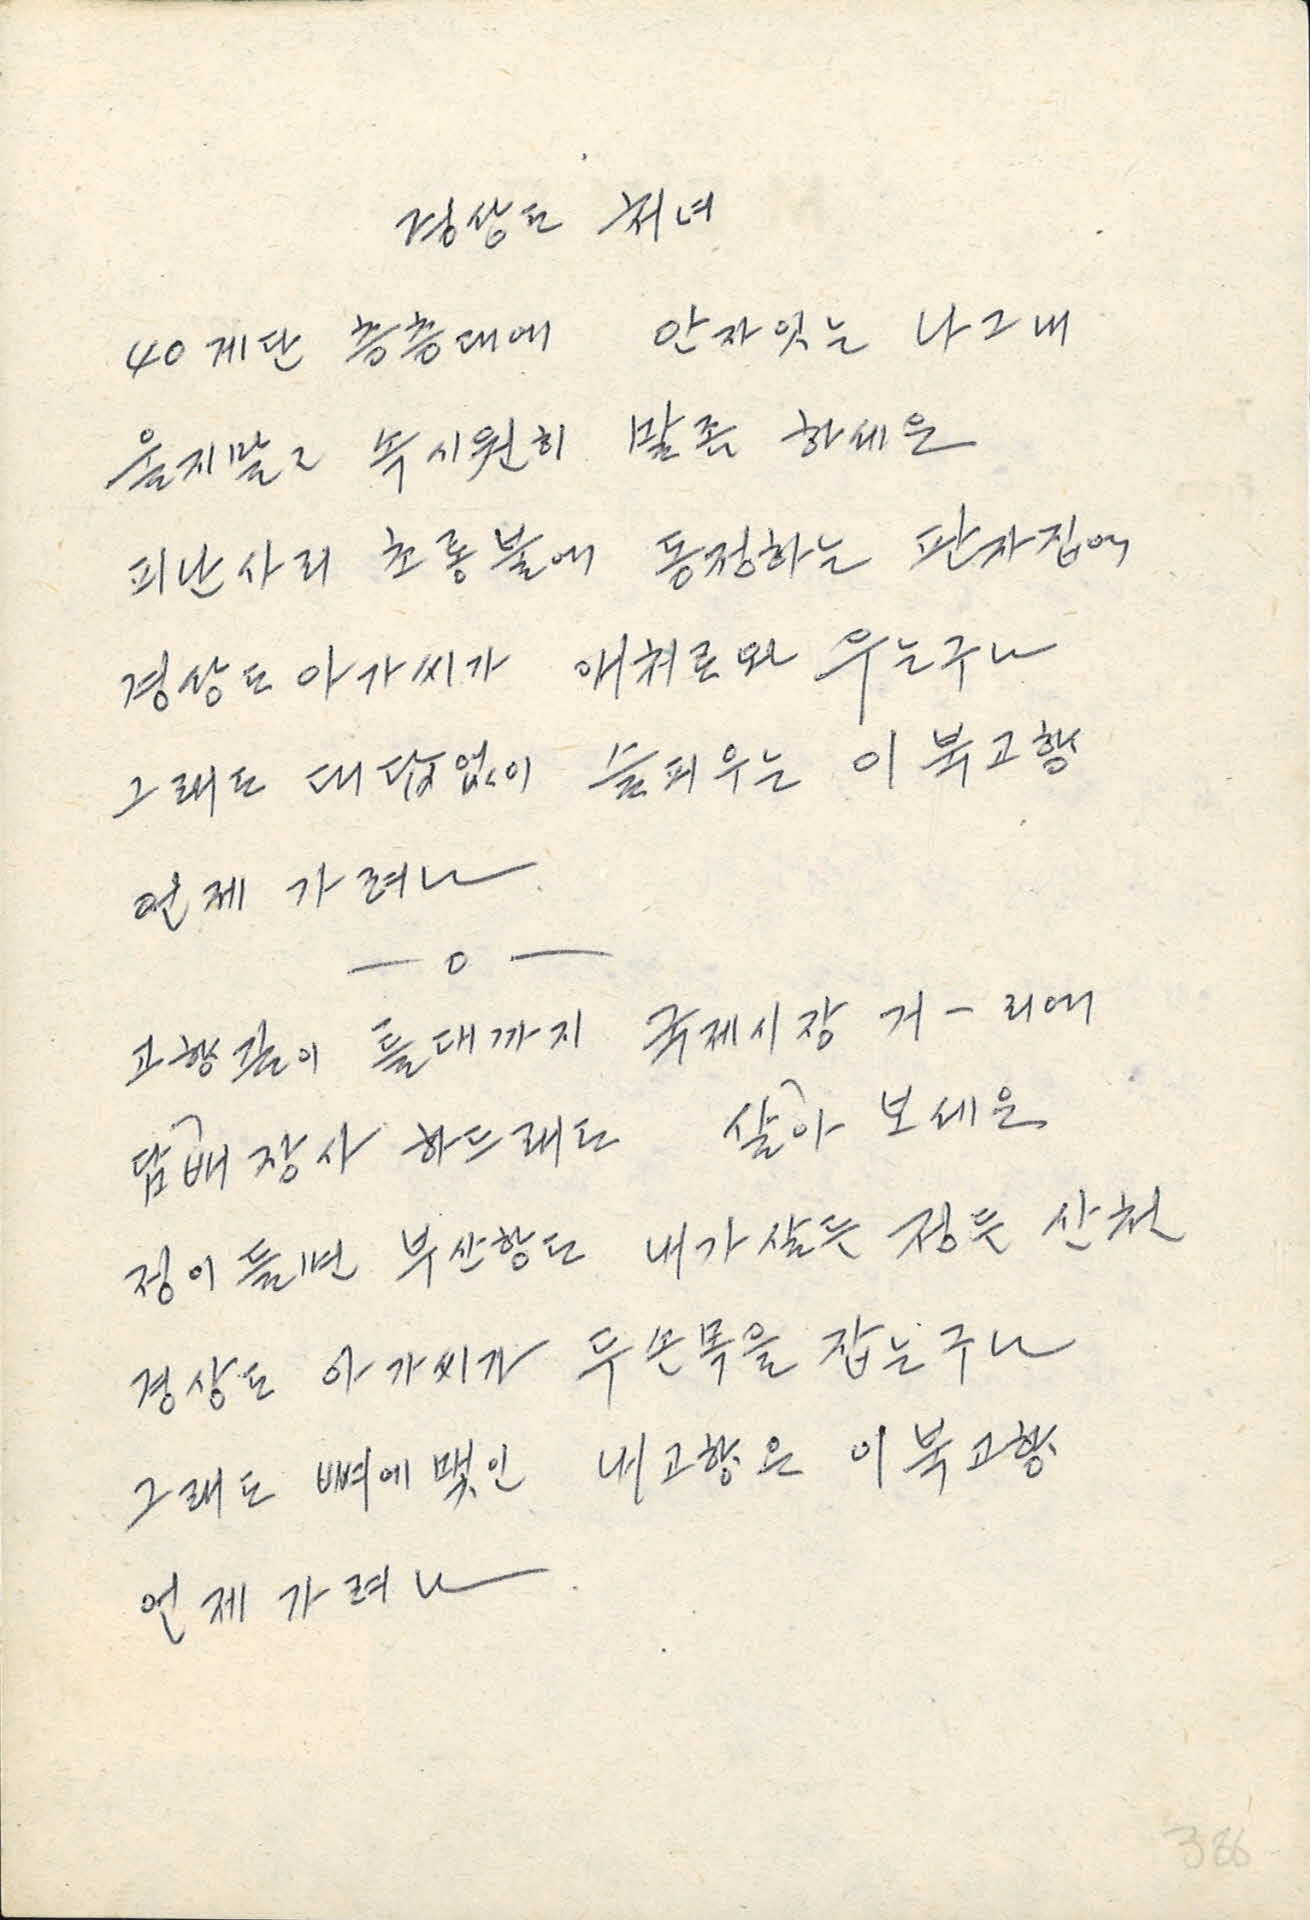 경상도 처녀
40계단 층층대에 안자잇는 나그내
울지말고 속시원히 말좀 하세요
피난사리 초롱불에 동정하는 판자집에
경상도 아가씨가 애처로와 우는구나
그래도 대답없이 슬피우는 이북고향
언제 가려나
— o —
고향길이 틀대까지 국제시장 거-리에
담배장사 하드래도 살아 보세요
정이들면 부산항도 내가살든 정든 산천
경상도 아가씨가 두손목을 잡는구나
그래도 뼈에맺인 내고향은 이북고향
언제가려나
386